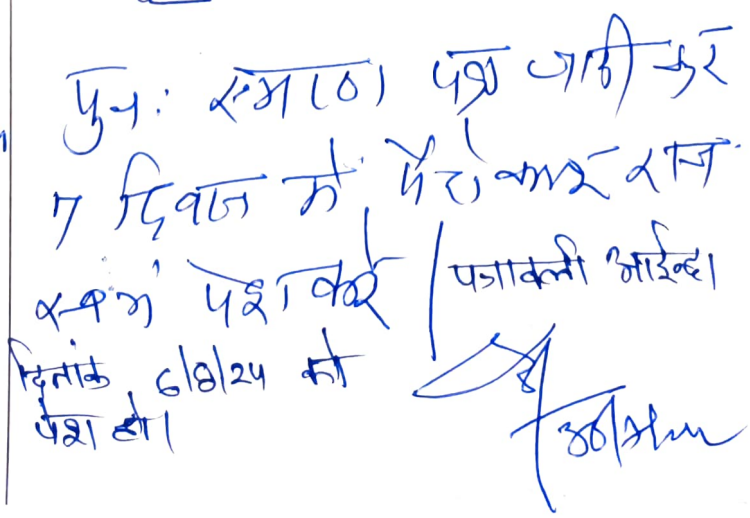 पुनः स्मरण पत्र जारी करे
7 दिवस में पैरोकार राज
स्वयं पेश करें / पत्रावली आईन्दा
दिनांक 6/8/24 को
पेश हो।